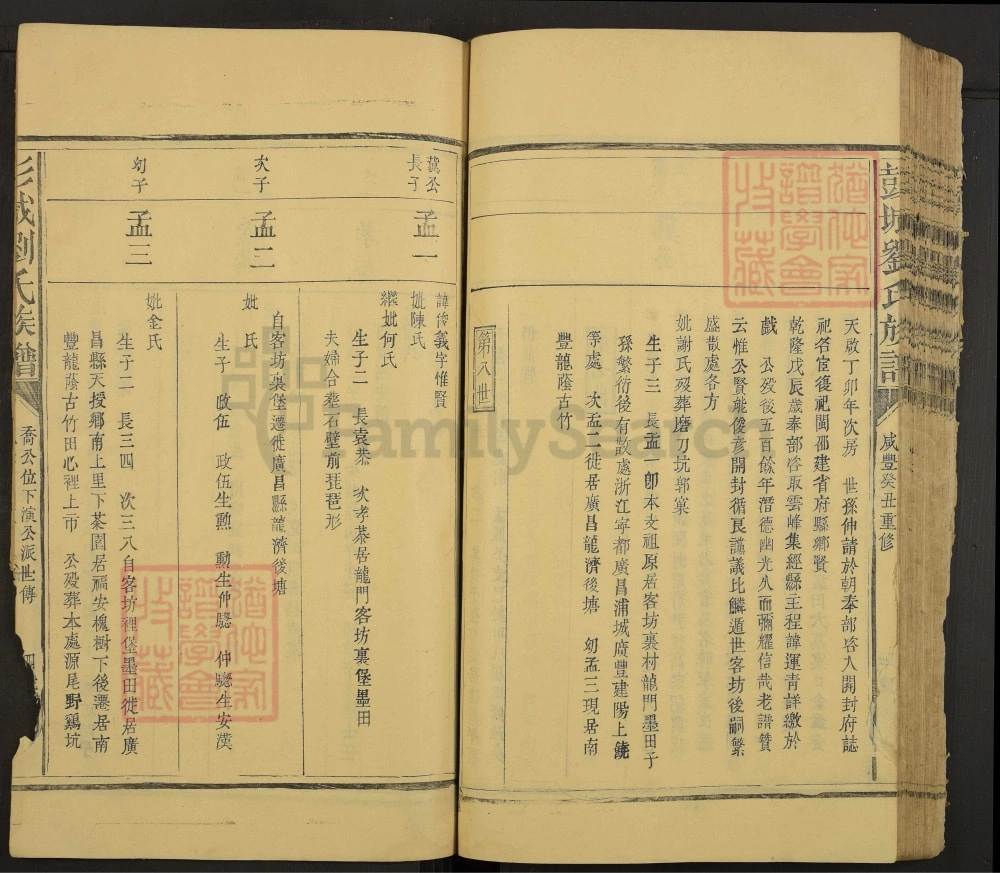 彭城劉氏族譜
咸豐癸丑重修
天啟丁卯年次房 世孫伸請於朝奉部咨入開封府誌
祀名宦復祀閩邵建省府縣鄉賢
乾隆戊辰歲奉部咨取雲峰集經縣主程諱運青詳繳於
戲 公殁後五百餘年潛德幽光久而彌耀信哉老譜贊
云惟公賢能後彥開封循良讜議比鱗遁世客坊後嗣繁
盛散處各方
妣謝氏殁葬磨刀坑鄣窠
生子三 長孟一即本支祖原居客坊裏村龍門墨田子
孫繁衍後有散處浙江寧都廣昌浦城廣豐建陽上饒
等處 次孟二徙居廣昌龍濟後塘 幼孟三現居南
豐龍蔭古竹
第八世
公
長子
孟一
諱俊義字惟賢
妣陳氏
繼妣何氏
生子二 長袁恭 次孝恭居龍門客坊裏堡墨田
夫婦合葬石壁前琵琶形
次子
孟二
自客坊裏堡遷徙廣昌縣龍濟後塘
妣 氏
生子 政伍 政伍生勲 勲生仲驄 仲驄生安漢
幼子
孟三
妣金氏
生子二 長三四 次三八自客坊裡堡墨田徙居廣
昌縣天授鄉南上里下茶園居福安槐樹下後遷居南
豐龍蔭古竹田心裡上市 公殁葬本處源尾野鷄坑
彭城劉氏族譜
喬公位下演公派世傳
猶他家
譜學會
收藏
猶他家
譜學會
收藏
FamilySearch